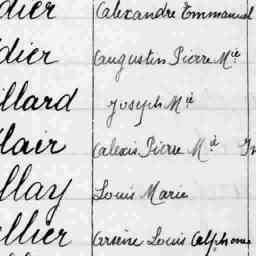 dier Alexandre Emmanuel
dier Augustin Pierre Mie
illard Joseph Mie
llair Alexis Pierre Mie
llay Louis Marie
llier Arsène Louis Alphonse